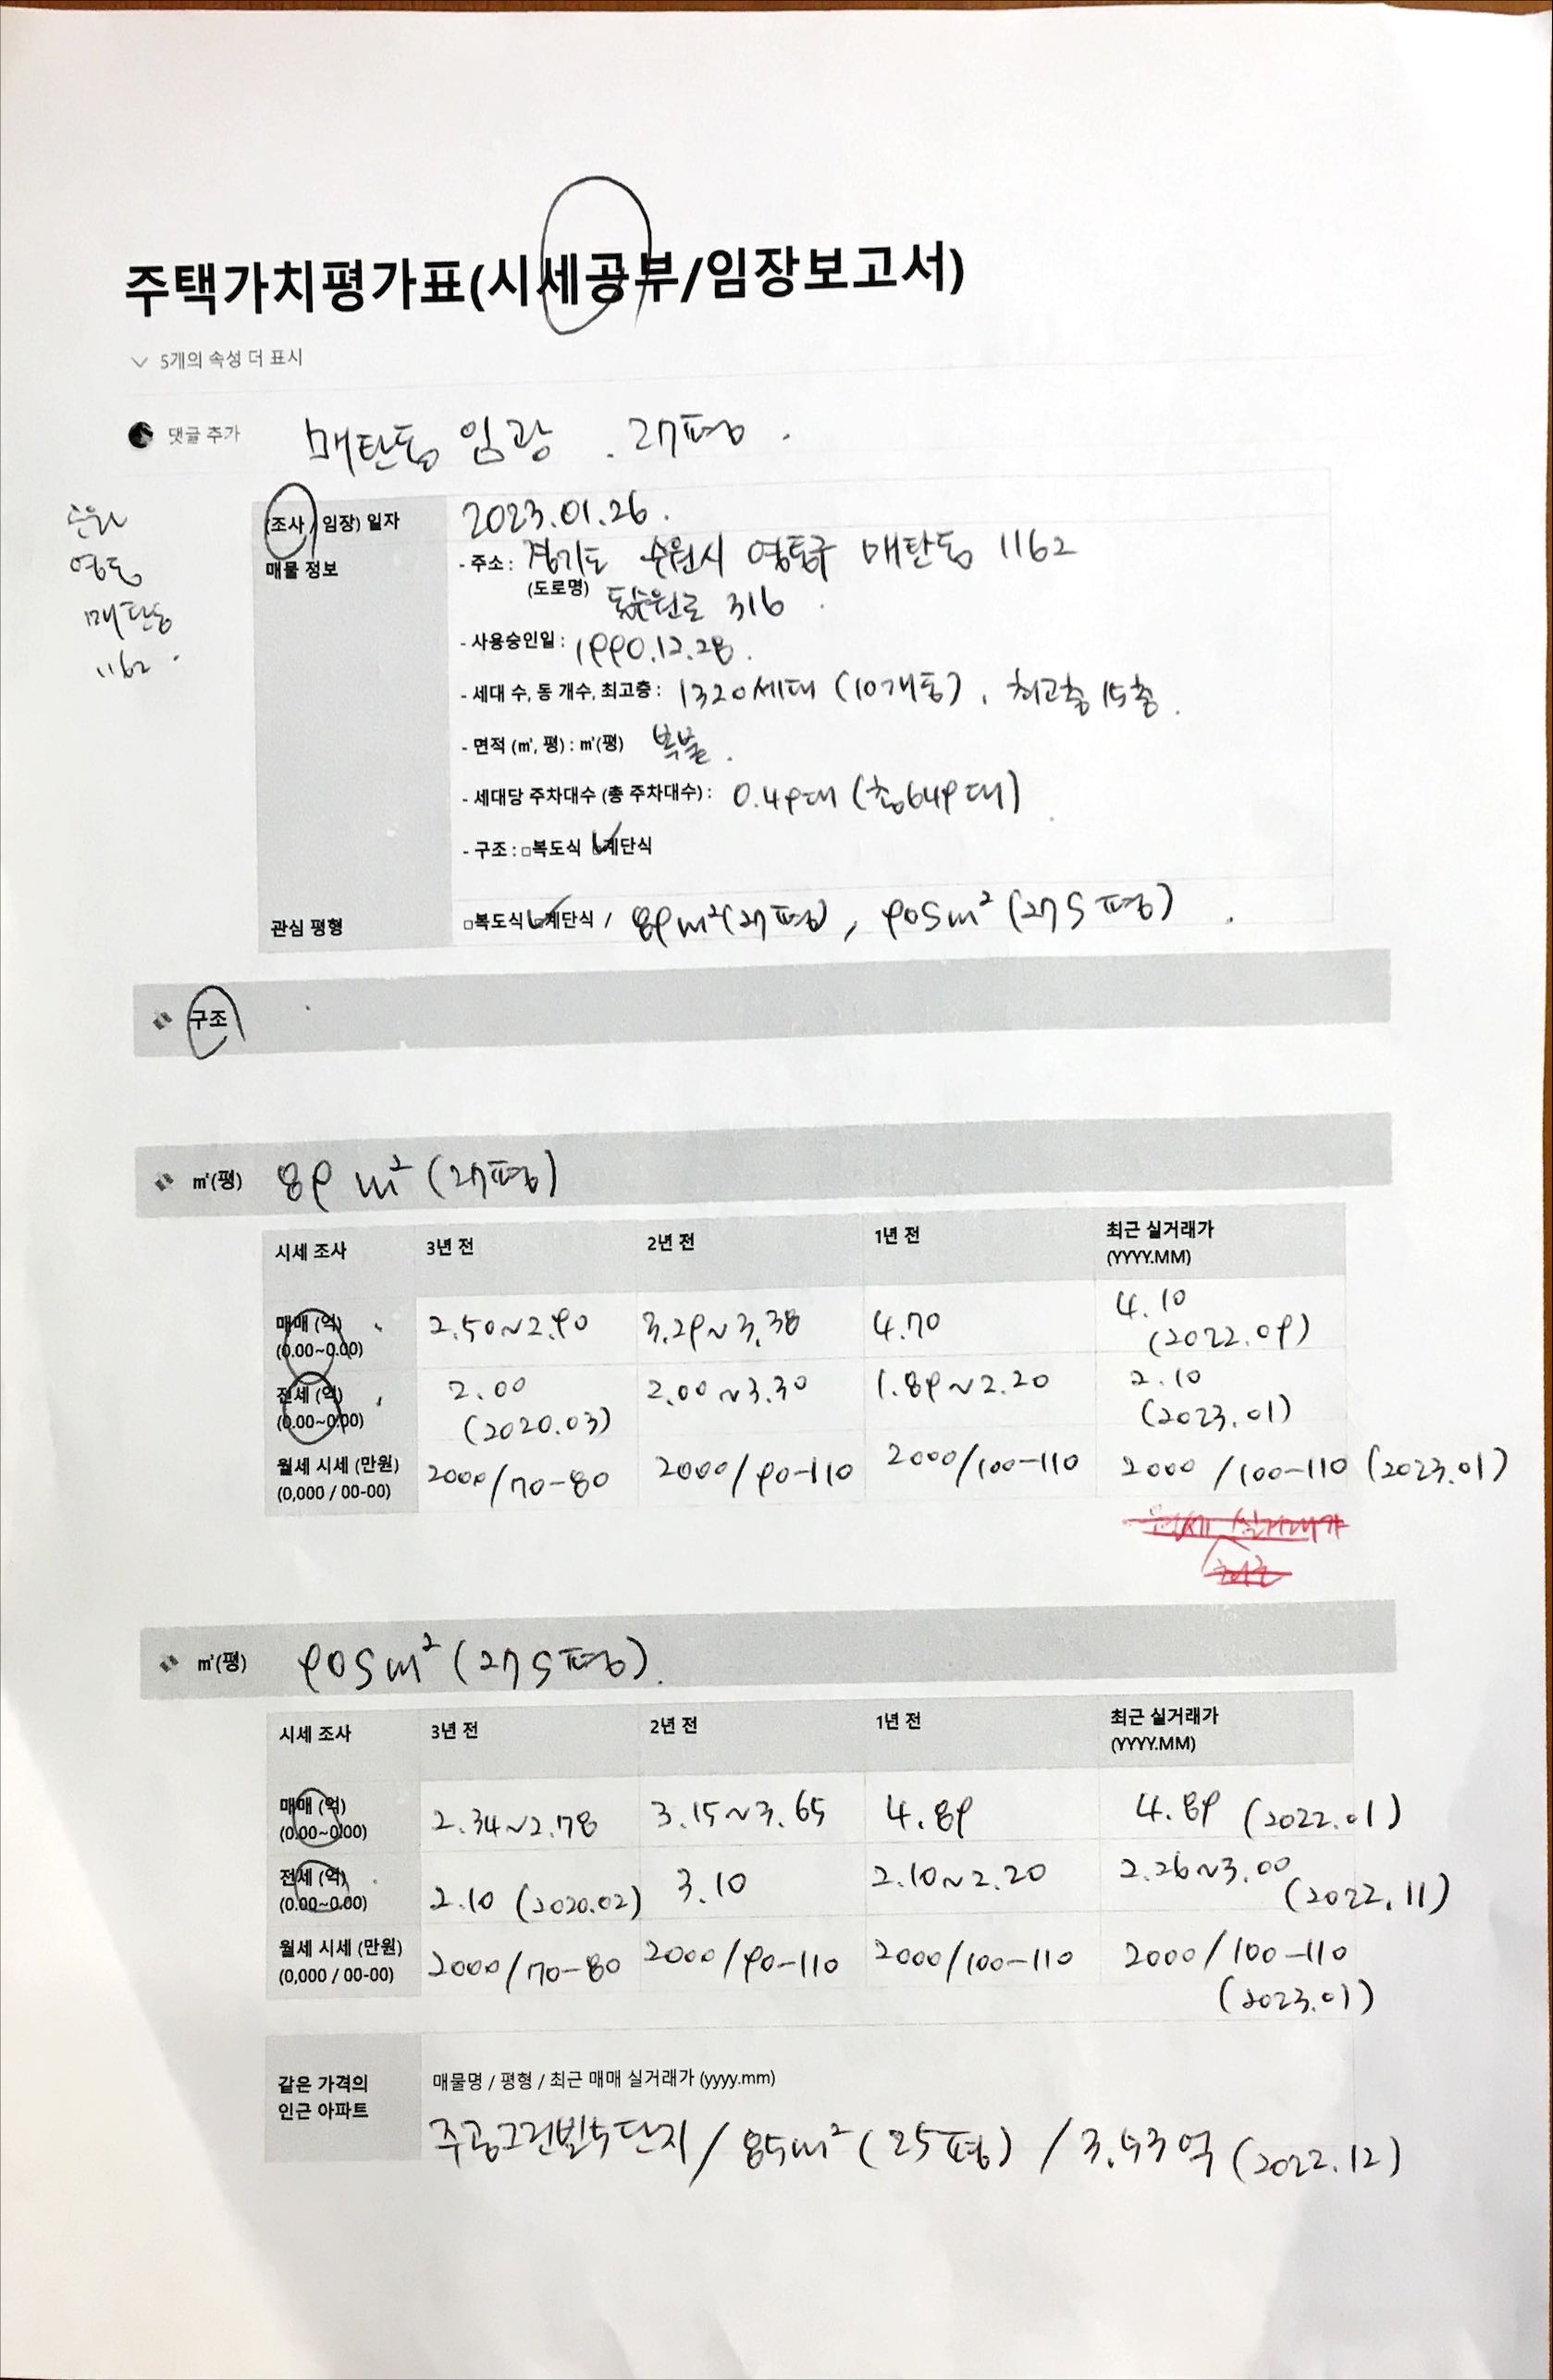 주택가치평가표(시세공부/임장보고서)
5개의 속성 더 표시
댓글 추가 매탄동 임광 . 27평 .
수원
영통
매탄동
1162 .
(조사 / 임장) 일자 2023.01.26 .
매물 정보
- 주소 : 경기도 수원시 영통구 매탄동 1162
(도로명) 동수원로 316 .
- 사용승인일 : 1990.12.28 .
- 세대 수, 동 개수, 최고층 : 1320세대 (10개동) , 최고층 15층 .
- 면적 (㎡, 평) : ㎡(평) 복붙 .
- 세대당 주차대수 (총 주차대수) : 0.49대 (총 649대)
- 구조 : □복도식 □계단식
관심 평형 □복도식 □계단식 / 89m²(27평) , 90Sm² (27S평) .
구조
㎡(평) 89 m² (27평)
시세 조사 3년 전 2년 전 1년 전 최근 실거래가
(YYYY.MM)
매매 (억) 2.50~2.90 3.29~3.38 4.70 4.10
(0.00~0.00) (2022.09)
전세 (억) 2.00 2.00~3.30 1.89~2.20 2.10
(0.00~0.00) (2020.03) (2023.01)
월세 시세 (만원) 2000/70-80 2000/90-110 2000/100-110 2000 /100-110 (2023.01)
(0,000 / 00-00)
월세 실거래가
㎡(평) 90Sm² (27S평).
시세 조사 3년 전 2년 전 1년 전 최근 실거래가
(YYYY.MM)
매매 (억) 2.34~2.78 3.15~3.65 4.89 4.89 (2022.01)
(0.00~0.00)
전세 (억) 2.10 (2020.02) 3.10 2.10~2.20 2.26~3.00
(0.00~0.00) (2022.11)
월세 시세 (만원) 2000/70-80 2000/90-110 2000/100-110 2000/100-110
(0,000 / 00-00) (2023.01)
같은 가격의
인근 아파트
매물명 / 평형 / 최근 매매 실거래가 (yyyy.mm)
주공그린빌5단지 / 85m² (25평) / 3.53억 (2022.12)